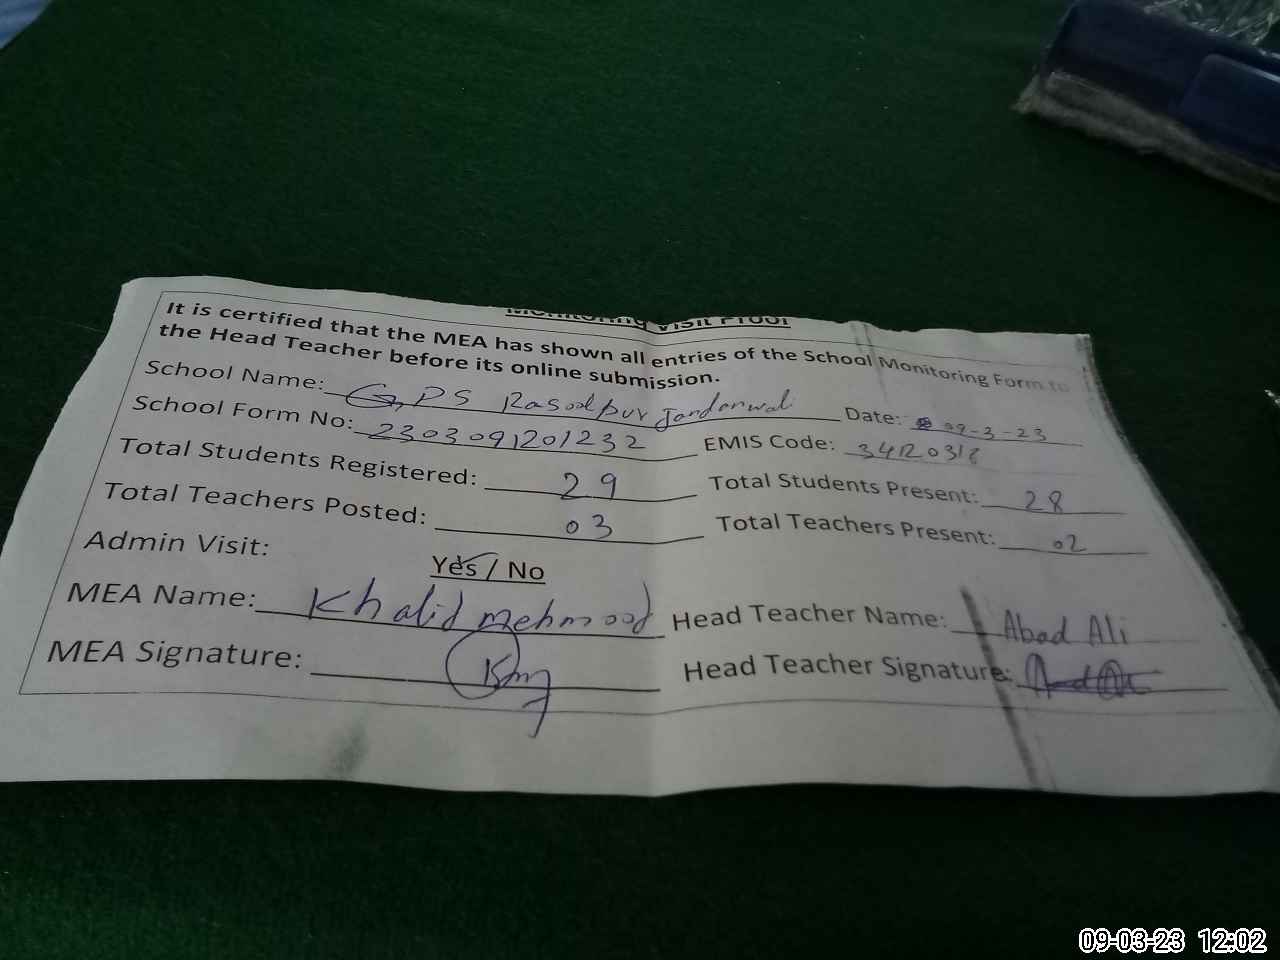 Monitoring Visit Proof
It is certified that the MEA has shown all entries of the School Monitoring Form to
the Head Teacher before its online submission.
School Name: G,PS Rasoolpur Jandanwali Date: 09-3-23
School Form No: 2303091201232 EMIS Code: 34120318
Total Students Registered: 29 Total Students Present: 28
Total Teachers Posted: 03 Total Teachers Present: 02
Admin Visit: Yes / No
MEA Name: Khalid mehmood Head Teacher Name: Abad Ali
MEA Signature: Head Teacher Signature:
09-03-23 12:02